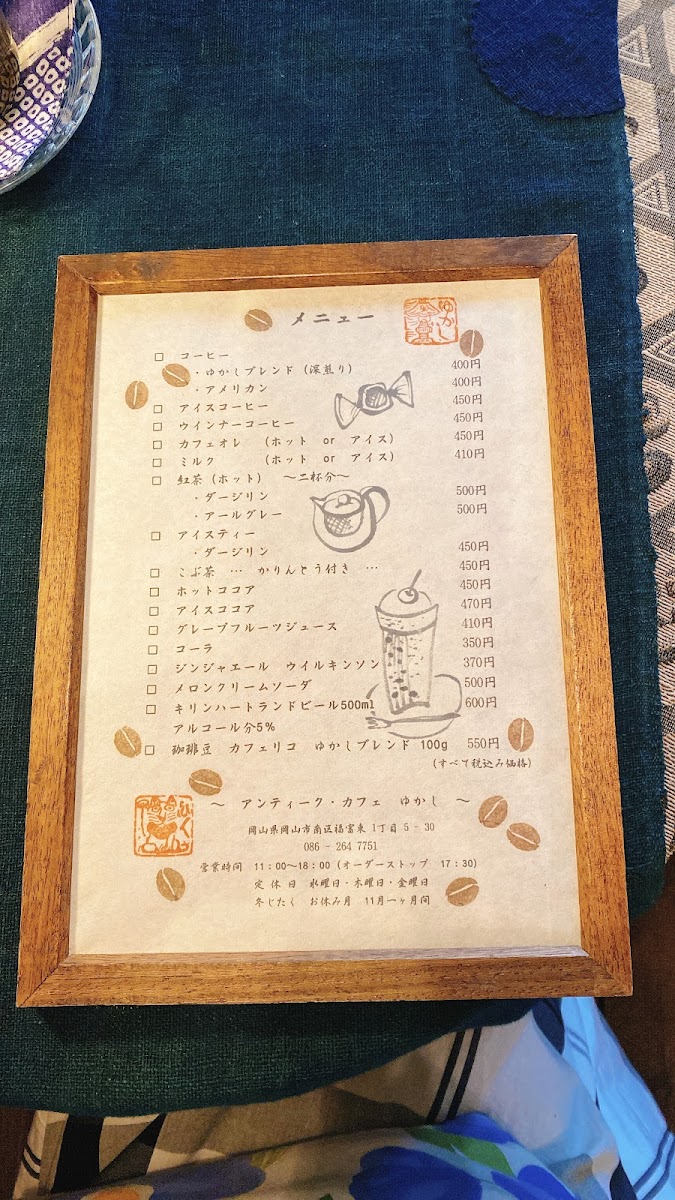 メニュー
ゆかし
□ コーヒー
・ゆかしブレンド (深煎り) 400円
・アメリカン 400円
□ アイスコーヒー 450円
□ ウインナーコーヒー 450円
□ カフェオレ (ホット or アイス) 450円
□ ミルク (ホット or アイス) 410円
□ 紅茶 (ホット) 〜二杯分〜
・ダージリン 500円
・アールグレー 500円
□ アイスティー
・ダージリン 450円
□ こぶ茶 … かりんとう付き … 450円
□ ホットココア 450円
□ アイスココア 470円
□ グレープフルーツジュース 410円
□ コーラ 350円
□ ジンジャエール ウイルキンソン 370円
□ メロンクリームソーダ 500円
□ キリンハートランドビール500ml 600円
アルコール分5%
□ 珈琲豆 カフェリコ ゆかしブレンド 100g 550円
(すべて税込み価格)
〜 アンティーク・カフェ ゆかし 〜
岡山県岡山市南区福富東 1丁目 5 - 30
086 - 264 7751
営業時間 11:00〜18:00 (オーダーストップ 17:30)
定 休 日 水曜日・木曜日・金曜日
冬じたく お休み月 11月一ヶ月間